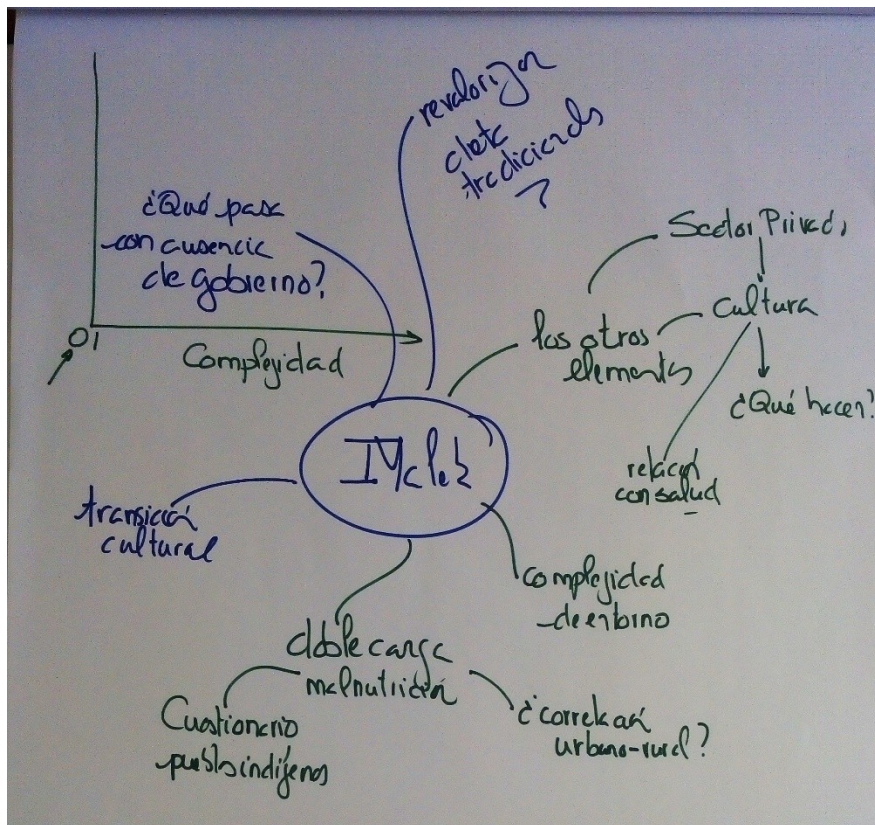 revalorizar
dieta
tradicional
?
¿Qué pasa
con ausencia
de gobierno?
Sector Privado
01
Complejidad
los otros
elementos
Cultura
¿Qué hacen?
relación
con salud
transición
cultural
complejidad
de entorno
doble carga
malnutrición
Cuestionario
pueblos indígenas
¿correlación
urbano-rural?